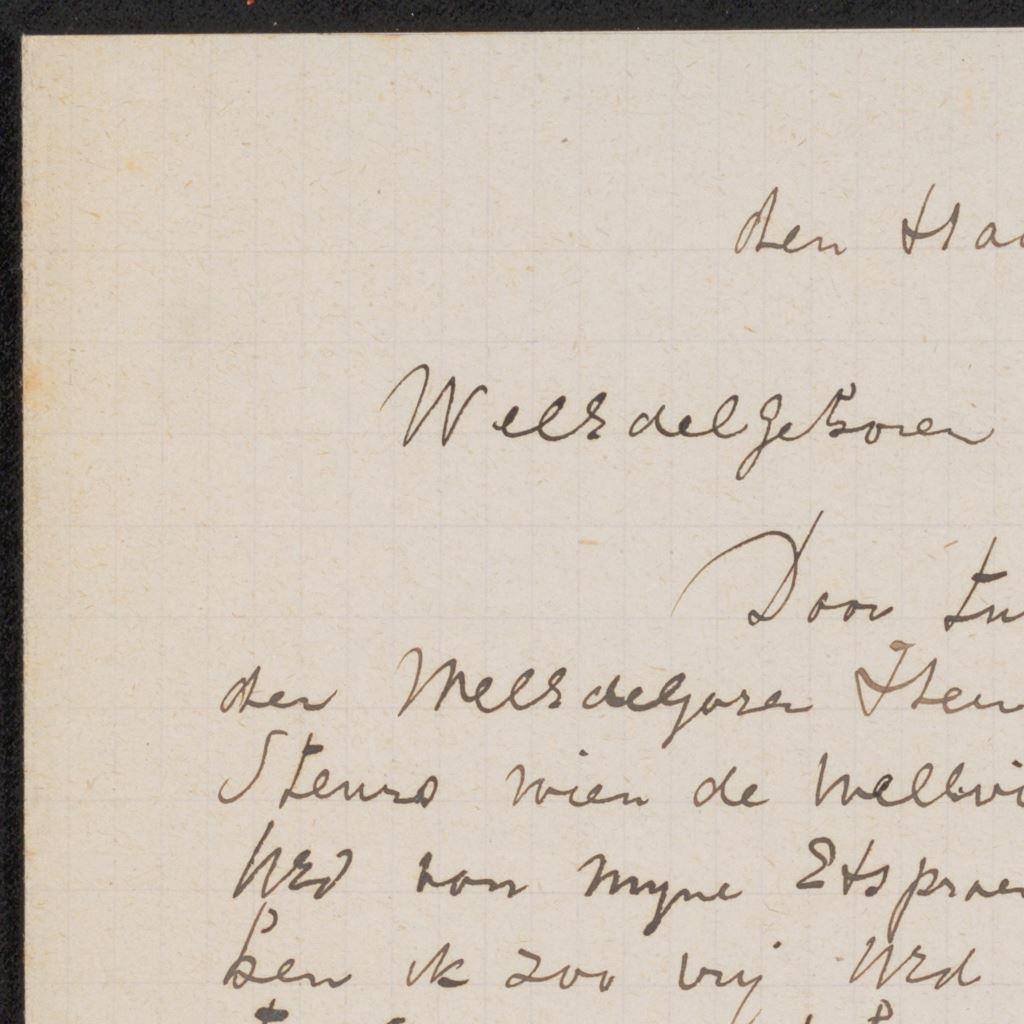 den Haa
WelEdelgeboren
Door tu
den WelEdelgboren Heer
Steurs wien de welwi
WEd van myne Etsproe
ben ik zoo vrij WEd